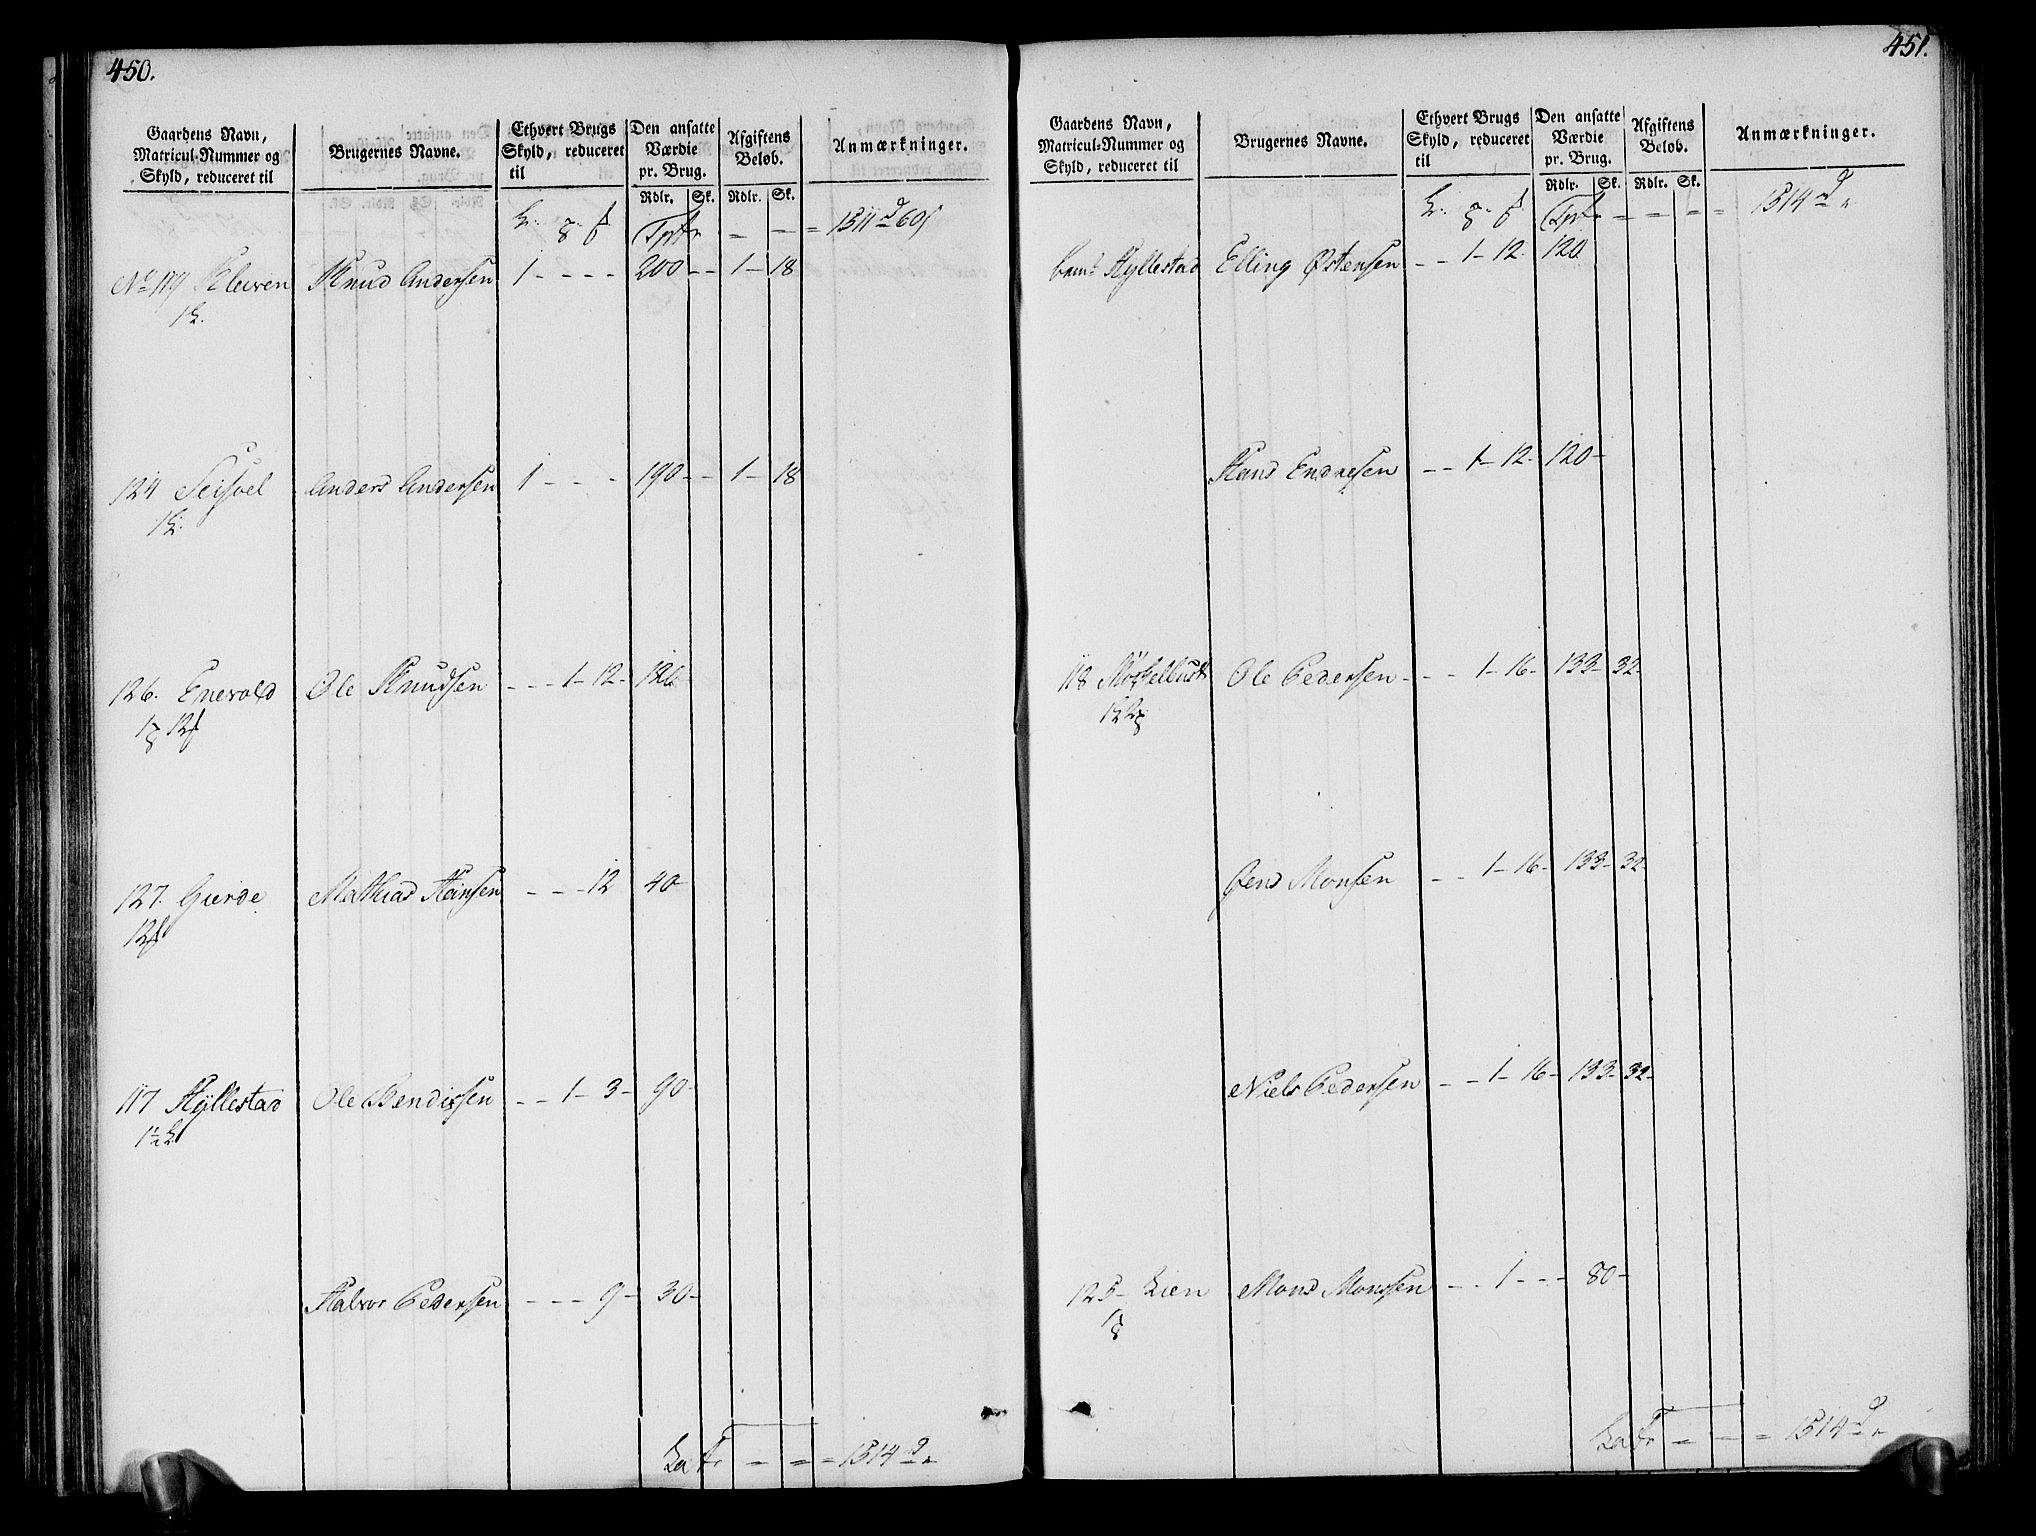 450.
Gaardens Navn, Matricul-Nummer og Skyld, reduceret til
Brugernes Navne.
Ethvert Brugs Skyld, reduceret til
Den ansatte Værdie pr. Brug.
Afgiftens Beløb.
Anmærkninger.
Rdlr. Sk. Rdlr. Sk.
Tpt = = = 1511 d 60
No 119 Kleiven Knud Andersen 1 - - - - 200 - - 1 - 18
1
124 Seisvel Anders Andersen 1 - - - 190 - - 1 - 18
1
126. Enevold Ole Knudsen - - - 1 - 12 - 126
1 12
127. Gierde Mathias Hansen - - - 12 40 -
12
117 Hyllestad Ole Bendixsen - - 1 - 3 - 90 -
1½
Halvor Pedersen - - - 9 - 30 -
Lat = = = 1514 d
451.
Gaardens Navn, Matricul-Nummer og Skyld, reduceret til
Brugernes Navne.
Ethvert Brugs Skyld, reduceret til
Den ansatte Værdie pr. Brug.
Afgiftens Beløb.
Anmærkninger.
Rdlr. Sk. Rdlr. Sk.
Tpt = = = 1514 d
Hyllestad Elling Østensen - - 1 - 12. 120
Hans Endresen - - 1 - 12 - 120 -
118 Ole Pedersen - - - 1 - 16 - 133 - 32 -
Jens Monsen - - 1 - 16 - 133 - 32 -
Niels Pedersen - - 1 - 16 - 133 - 32 -
125 - Lien Mons Monssen - - 1 - - - 80 -
1
Lat = = = 1514 d